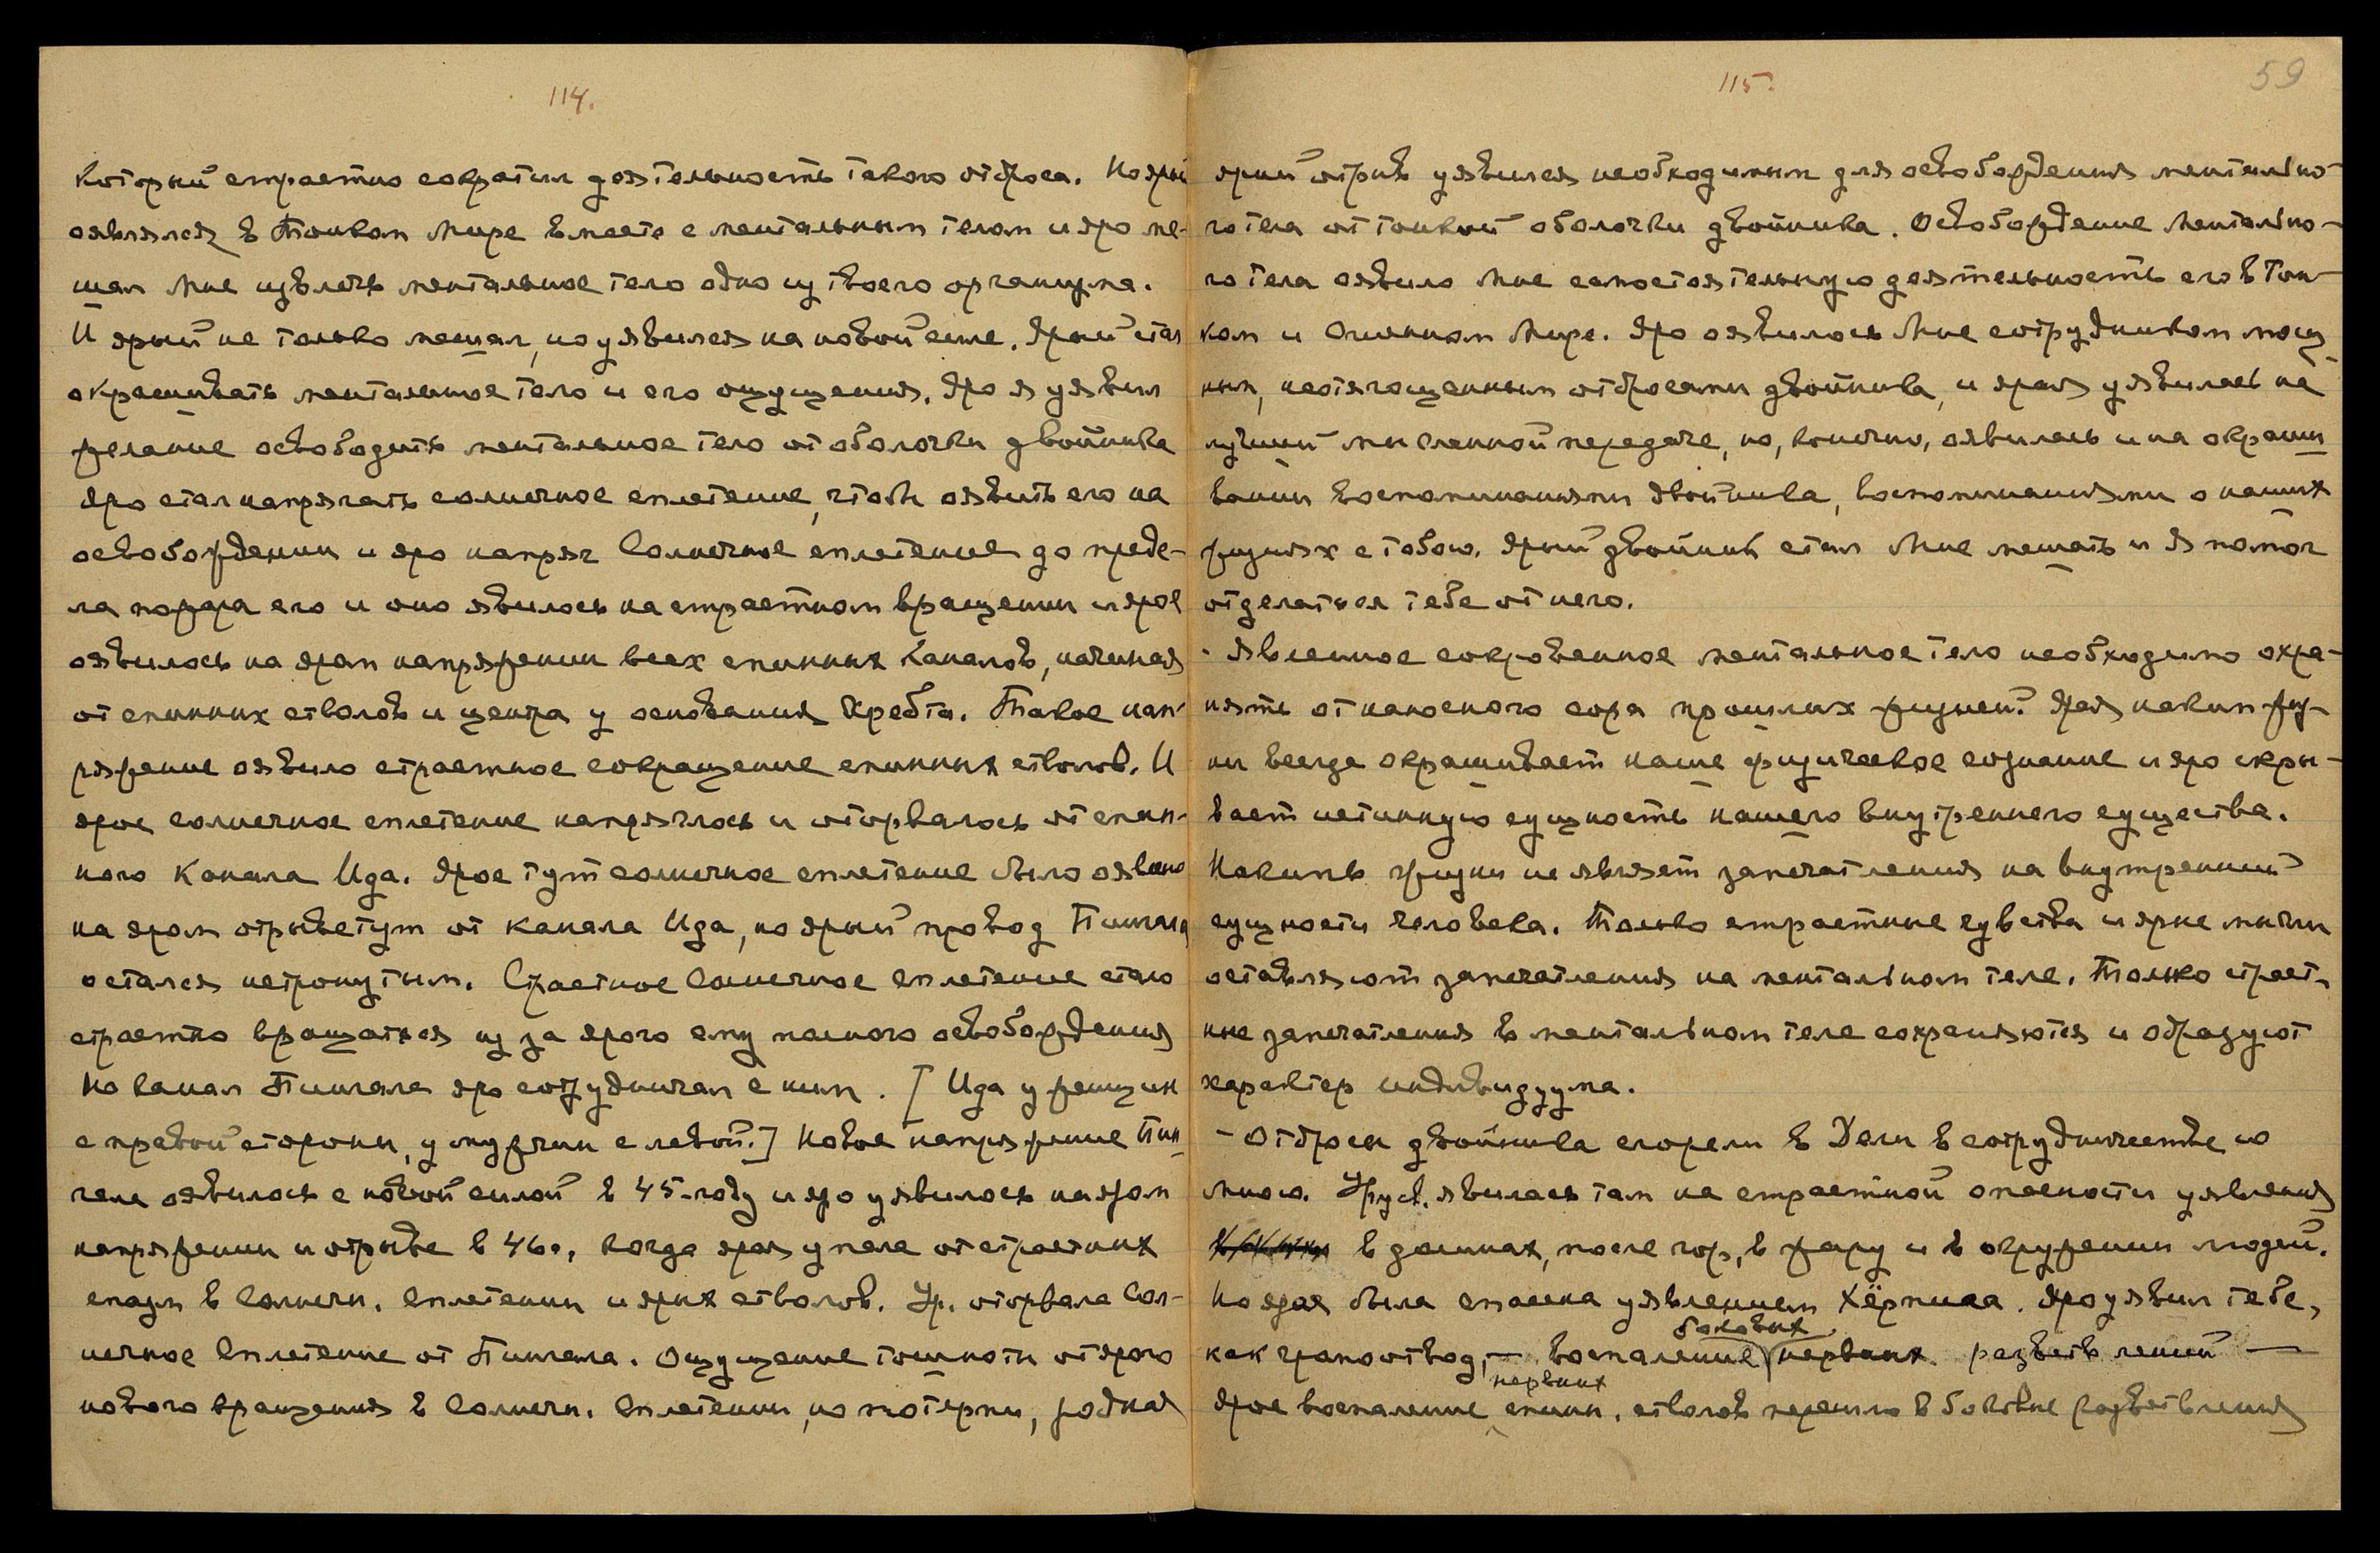 114.
который страстно сократил деятельность такого отброса. Но ярый
оявлялся в Тонком Мире вместе с ментальным телом и яро ме-
шал Мне извлечь ментальное тело одно из твоего организма.
И ярый не только мешал, но уявился на новой силе. Ярый стал
окрашивать ментальное тело и его ощущения. Яро я уявил
желание освободить ментальное тело от оболочки двойника
Яро стал напрягать солнечное сплетение, чтобы оявить его на
освобождении и яро напряг Солнечное сплетение до преде-
ла пожара его и оно явилось на страстном вращении и ярое
оявилось на яром напряжении всех спинных Каналов, начиная
от спинных стволов и центра у основания Хребта. Такое нап-
ряжение оявило страстное сокращение спинных стволов. И
ярое солнечное сплетение напряглось и оторвалось от спин-
ного Канала Ида. Ярое тут солнечное сплетение было оявлено
на яром отрыве тут от канала Ида, но ярый провод Пингала
остался нетронутым. Страстное Солнечное Сплетение стало
страстно вращаться из за ярого ему полного освобождения
Но канал Пингала яро сотрудничал с ним. [ Ида у женщин
с правой стороны, у мужчин с левой.] Новое напряжение Пин
гала оявилось с новой силой в 45-году и яро уявилось на яром
напряжении и отрыве в 46 г., когда ярая упала от страстных
спазм в Солнечн. сплетении и ярых стволов. Ур. оторвала Сол-
нечное Сплетение от Пингала. Ощущение тошноты от ярого
нового вращения в Солнечн. Сплетении, но потерпи, родная
115.
59
ярый отрыв уявился необходимым для освобождения ментально-
го тела от тонкой оболочки двойника. Освобождение Ментально-
го тела оявило Мне самостоятельную деятельность его в Тон-
ком и Огненном Мире. Яро оявилось Мне сотрудником мощ
ным, неотягощенным отбросами двойника, и ярая уявилась на
лучшей мысленной передаче, но, конечно, оявилась и на окраши
вании воспоминаниями двойника, воспоминаниями о наших
жизнях с тобою. Ярый двойник стал Мне мешать и Я помог
отделаться тебе от него.
- Явленное сокровенное ментальное тело необходимо охра-
нять от наносного сора прошлых жизней. Ярая накипь жиз-
ни всегда окрашивает наше физическое сознание и яро скры-
вает истинную сущность нашего внутреннего существа.
Накипь жизни не являет запечатления на внутренний
сущности человека. Только страстные чувства и ярые мысли
оставляют запечатления на ментальном теле. Только страст-
ные запечатления в ментальном теле сохраняются и образуют
характер индивидуума.
- Отбросы двойника сгорели в Дели в сотрудничестве со
Мною. Урусв. явилась там на страстной опасности уявления
в долинах, после гор, в жару и в окружении людей.
Но ярая была спасена уявлением Хёрписа. Яро уявил тебе,
боковых
как громоотвод, — воспаление нервных разветвлений —
нервных
Ярое воспаление спинн. стволов перешло в боковые разветвления